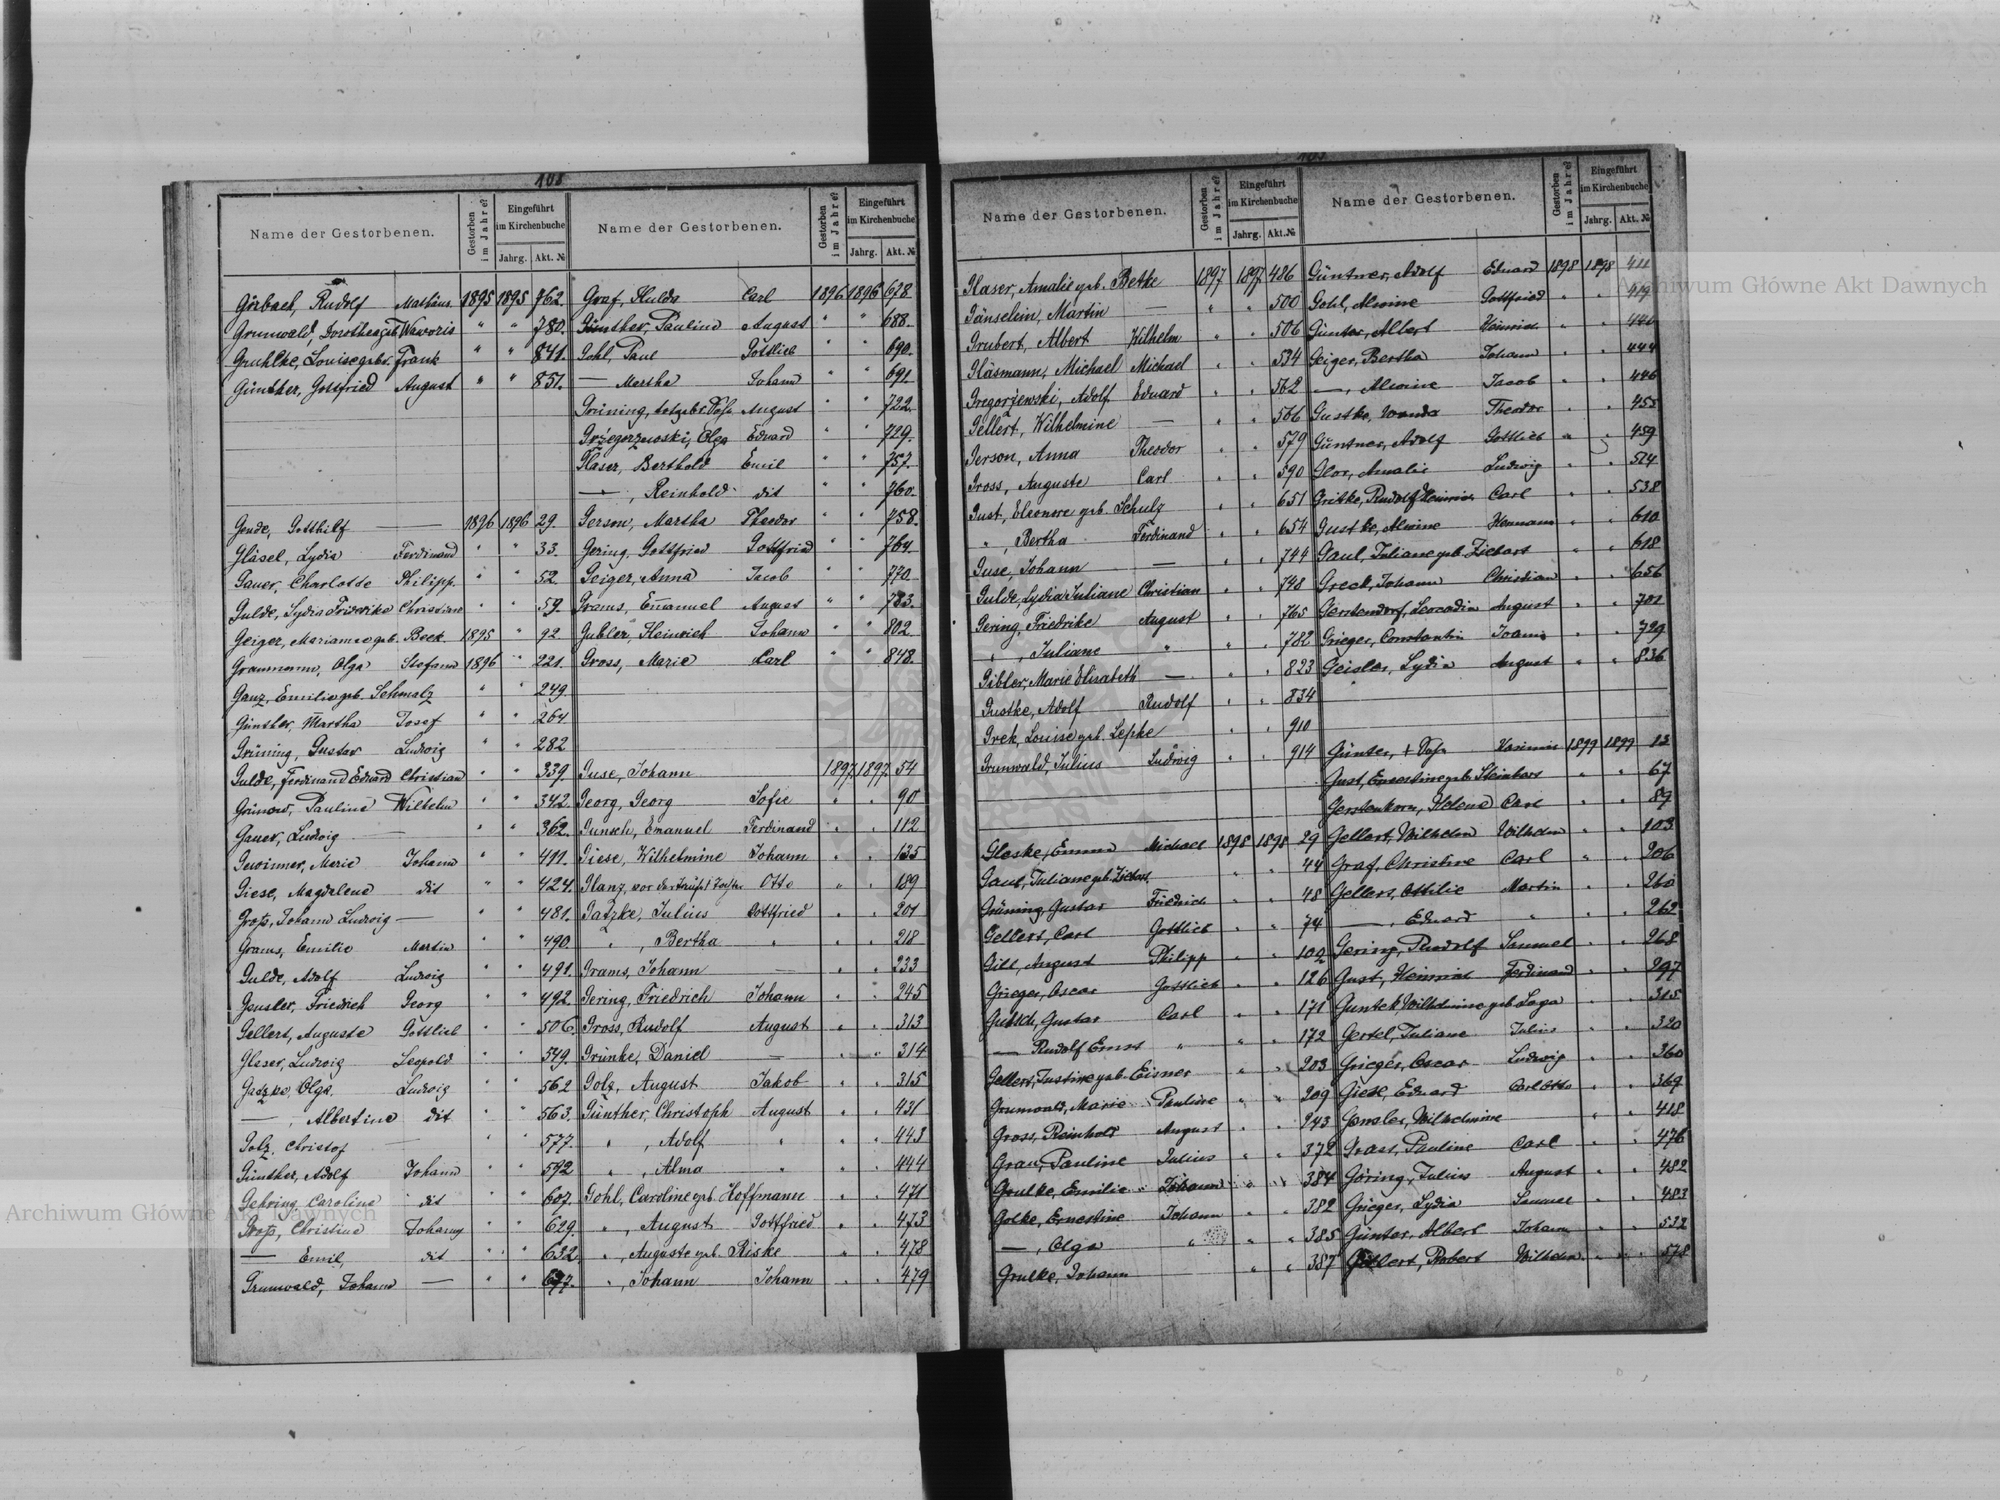 108
Name der Gestorbenen. Gestorben im Jahre? Eingeführt im Kirchenbuche Jahrg. Akt. №
Görbach, Rudolf Mathäus 1895 1895 762.
Grunwald, Dorothea geb. Waworis " " 780.
Gruhlke, Louise gebor. Frank " " 841.
Günther, Gottfried August " " 851.
Gende, Gotthilf — 1896 1896 29.
Gläsel, Lydia Ferdinand " " 33.
Gauer, Charlotte Philipp " " 52.
Gulde, Lydia Friderike Christian " " 59.
Geiger, Mariamne geb. Beck 1895 " 92
Graumann, Olga Stefann 1896 " 221.
Ganz, Emilie geb. Schmalz " " 249.
Günther, Martha Josef " " 264
Grüning, Gustav Ludwig " " 282
Gulde, Ferdinand Eduard Christian " " 339.
Grünow, Pauline Wilhelm " " 342.
Gauer, Ludwig — " " 362.
Gewinner, Marie Johann " " 411.
Giese, Magdalene dit " " 424.
Groß, Johann Ludwig — " " 481.
Grams, Emilie Martin " " 490.
Gulde, Adolf Ludwig " " 491.
Gensler, Friedrich Georg " " 492.
Gellert, Auguste Gottlieb " " 506.
Gleser, Ludwig Leopold " " 549.
Gatzke, Olga Ludwig " " 562
— , Albertine dit " " 563.
Golz, Christof — " " 577.
Günther, Adolf Johann " " 592
Gehring, Caroline dit " " 607.
Groß, Christine Johann " " 629.
— Emil, dit " " 632.
Grunwald, Johann — " " 677.
Name der Gestorbenen. Gestorben im Jahre? Eingeführt im Kirchenbuche Jahrg. Akt. №
Graf, Hulda Carl 1896 1896 678
Günther, Pauline August " " 688.
Gohl, Paul Gottlieb " " 690.
— Martha Johann " " 691.
Grüning, August " " 722.
Grzegorzewski, Olga Eduard " " 729.
Glaser, Berthold Emil " " 757.
— , Reinhold dit " " 760.
Gerson, Martha Theodor " " 758.
Gering, Gottfried Gottfried " " 764.
Geiger, Anna Jacob " " 770.
Grams, Emanuel August " " 783.
Gubler, Heinrich Johann " " 802.
Gross, Marie Carl " " 848.
Guse, Johann 1897. 1897. 54
Georg, Georg Sofie " " 90
Gunsch, Emanuel Ferdinand " " 112
Giese, Wilhelmine Johann " " 135
Glanz, vor der Taufe † Tochter Otto " " 189
Gatzke, Julius Gottfried " " 201
" , Bertha " " " 218
Grams, Johann — " " 233
Gering, Friedrich Johann " " 245
Gross, Rudolf August " " 313
Grünke, Daniel — " " 314
Golz, August Jakob " " 315
Günther, Christoph August " " 431
" , Adolf " " " 443
" , Alma " " " 444
Gohl, Caroline geb. Hoffmann " " 471
" , August Gottfried " " 473
" , Auguste geb. Riske " " 478
" , Johann Johann " " 479
Name der Gestorbenen. Gestorben im Jahre? Eingeführt im Kirchenbuche Jahrg. Akt. №
Glaser, Amalie geb. Betke 1897 1897. 486
Gänselein, Martin — " " 500
Grubert, Albert Wilhelm " " 506
Gläsmann, Michael Michael " " 534
Gregorzewski, Adolf Eduard " " 562
Gellert, Wilhelmine — " " 566
Gerson, Anna Theodor " " 579
Gross, Auguste Carl " " 590
Gust, Eleonore geb. Schulz " " 651
" , Bertha Ferdinand " " 654
Guse, Johann — " " 744
Gulde, Lydia Juliane Christian " " 748
Gering, Friedrike August " " 765
" , Juliane " " " 782
Gibler, Marie Elisabeth — " " 823
Gustke, Adolf Rudolf " " 834
Grek, Louise geb. Lepke " " 910
Grunwald, Julius Ludwig " " 914
Gleske, Emma Michael 1898 1898 29
Gaul, Juliane geb. Ziebart " " 44
Grüning, Gustav Friedrich " " 48
Gellert, Carl Gottlieb " " 74
Gill, August Philipp " " 109
Grieger, Oscar Gottlieb " " 126
Gutsch, Gustav Carl " " 171
— Rudolf Ernst " " " 172
Gellert, Justine geb. Eisner " " 203
Grunwald, Marie Pauline " " 209
Gross, Reinhold August " " 243
Grau, Pauline Julius " " 372
Grulke, Emilie Johann " " 384
Golke, Ernestine Johann " " 382
— , Olga " " " 385
Grulke, Johann " " 387
Name der Gestorbenen. Gestorben im Jahre? Eingeführt im Kirchenbuche Jahrg. Akt. №
Güntner, Adolf Eduard 1898 1898 411
Gohl, Alwine Gottfried " " 419
Günter, Albert Heinrich " " 440
Geiger, Bertha Johann " " 444
— , Alwine Jacob " " 446
Gustke, Wanda Theodor " " 455
Güntner, Adolf Gottlieb " " 459
Glor, Amalie Ludwig " " 514
Gritke, Rudolf Heinrich Carl " " 538
Gustke, Alwine Hermann " " 610
Gaul, Juliane geb. Ziebart " " 618
Greck, Johann Christian " " 656
Gerstendorf, Leocadia August " " 701
Grieger, Constantin Joanis " " 729
Geisler, Lydia August " " 836
Günter, † Kasimir 1899 1899 13
Gust, Ernestine geb. Steinbart " " 67
Gerstenkorn, Helene Carl " " 89
Gellert, Wilhelm Wilhelm " " 103
Graf, Christine Carl " " 206
Gellert, Ottilie Martin " " 260
— , Eduard " " " 262
Gering, Rudolf Samuel " " 268
Gust, Heinrich Ferdinand " " 297
Guntek Wilhelmine geb. Laga " " 315
Gertel, Juliane Julius " " 320
Grieger, Oscar Ludwig " " 360
Giese, Eduard Carl Otto " " 369
Gensler, Wilhelmine " " 418
Grass, Pauline Carl " " 476
Göring, Julius August " " 482
Grieger, Lydia Samuel " " 483
Günter, Albert Johann " " 532
Gellert, Robert Wilhelm " " 578
Archiwum Główne Akt Dawnych
Archiwum Główne Akt Dawnych